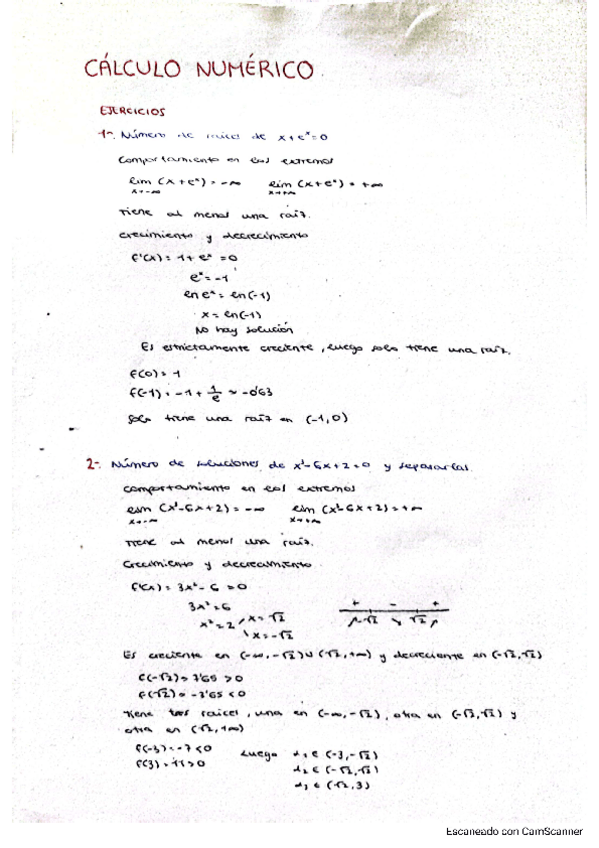 CÁLCULO NUMÉRICO
EJERCICIOS
1-. Número de raíces de x+eˣ=0
Comportamiento en los extremos
lim (x+eˣ) = -∞   lim (x+eˣ) = +∞
x→-∞   x→+∞
Tiene al menos una raíz.
Crecimiento y decrecimiento
f'(x) = 1+eˣ = 0
eˣ = -1
ln eˣ = ln(-1)
x = ln(-1)
No hay solución
Es estrictamente creciente, luego solo tiene una raíz.
f(0) = 1
f(-1) = -1 + 1/e ≈ -0'63
Solo tiene una raíz en (-1,0)
2-. Número de soluciones de x³-6x+2=0 y separarlas.
Comportamiento en los extremos
lim (x³-6x+2) = -∞   lim (x³-6x+2) = +∞
x→-∞   x→+∞
Tiene al menos una raíz.
Crecimiento y decrecimiento.
f'(x) = 3x²-6 = 0
3x² = 6
x² = 2   x = √2
x = -√2
+ - +
-√2 √2
Es creciente en (-∞,-√2)∪(√2,+∞) y decreciente en (-√2,√2)
f(-√2) = 7'65 > 0
f(√2) = -3'65 < 0
Tiene tres raíces, una en (-∞,-√2), otra en (-√2,√2) y
otra en (√2,+∞)
f(-3) = -7 < 0   Luego α₁ ∈ (-3,-√2)
f(3) = 11 > 0   α₂ ∈ (-√2,√2)
α₃ ∈ (√2,3)
Escaneado con CamScanner